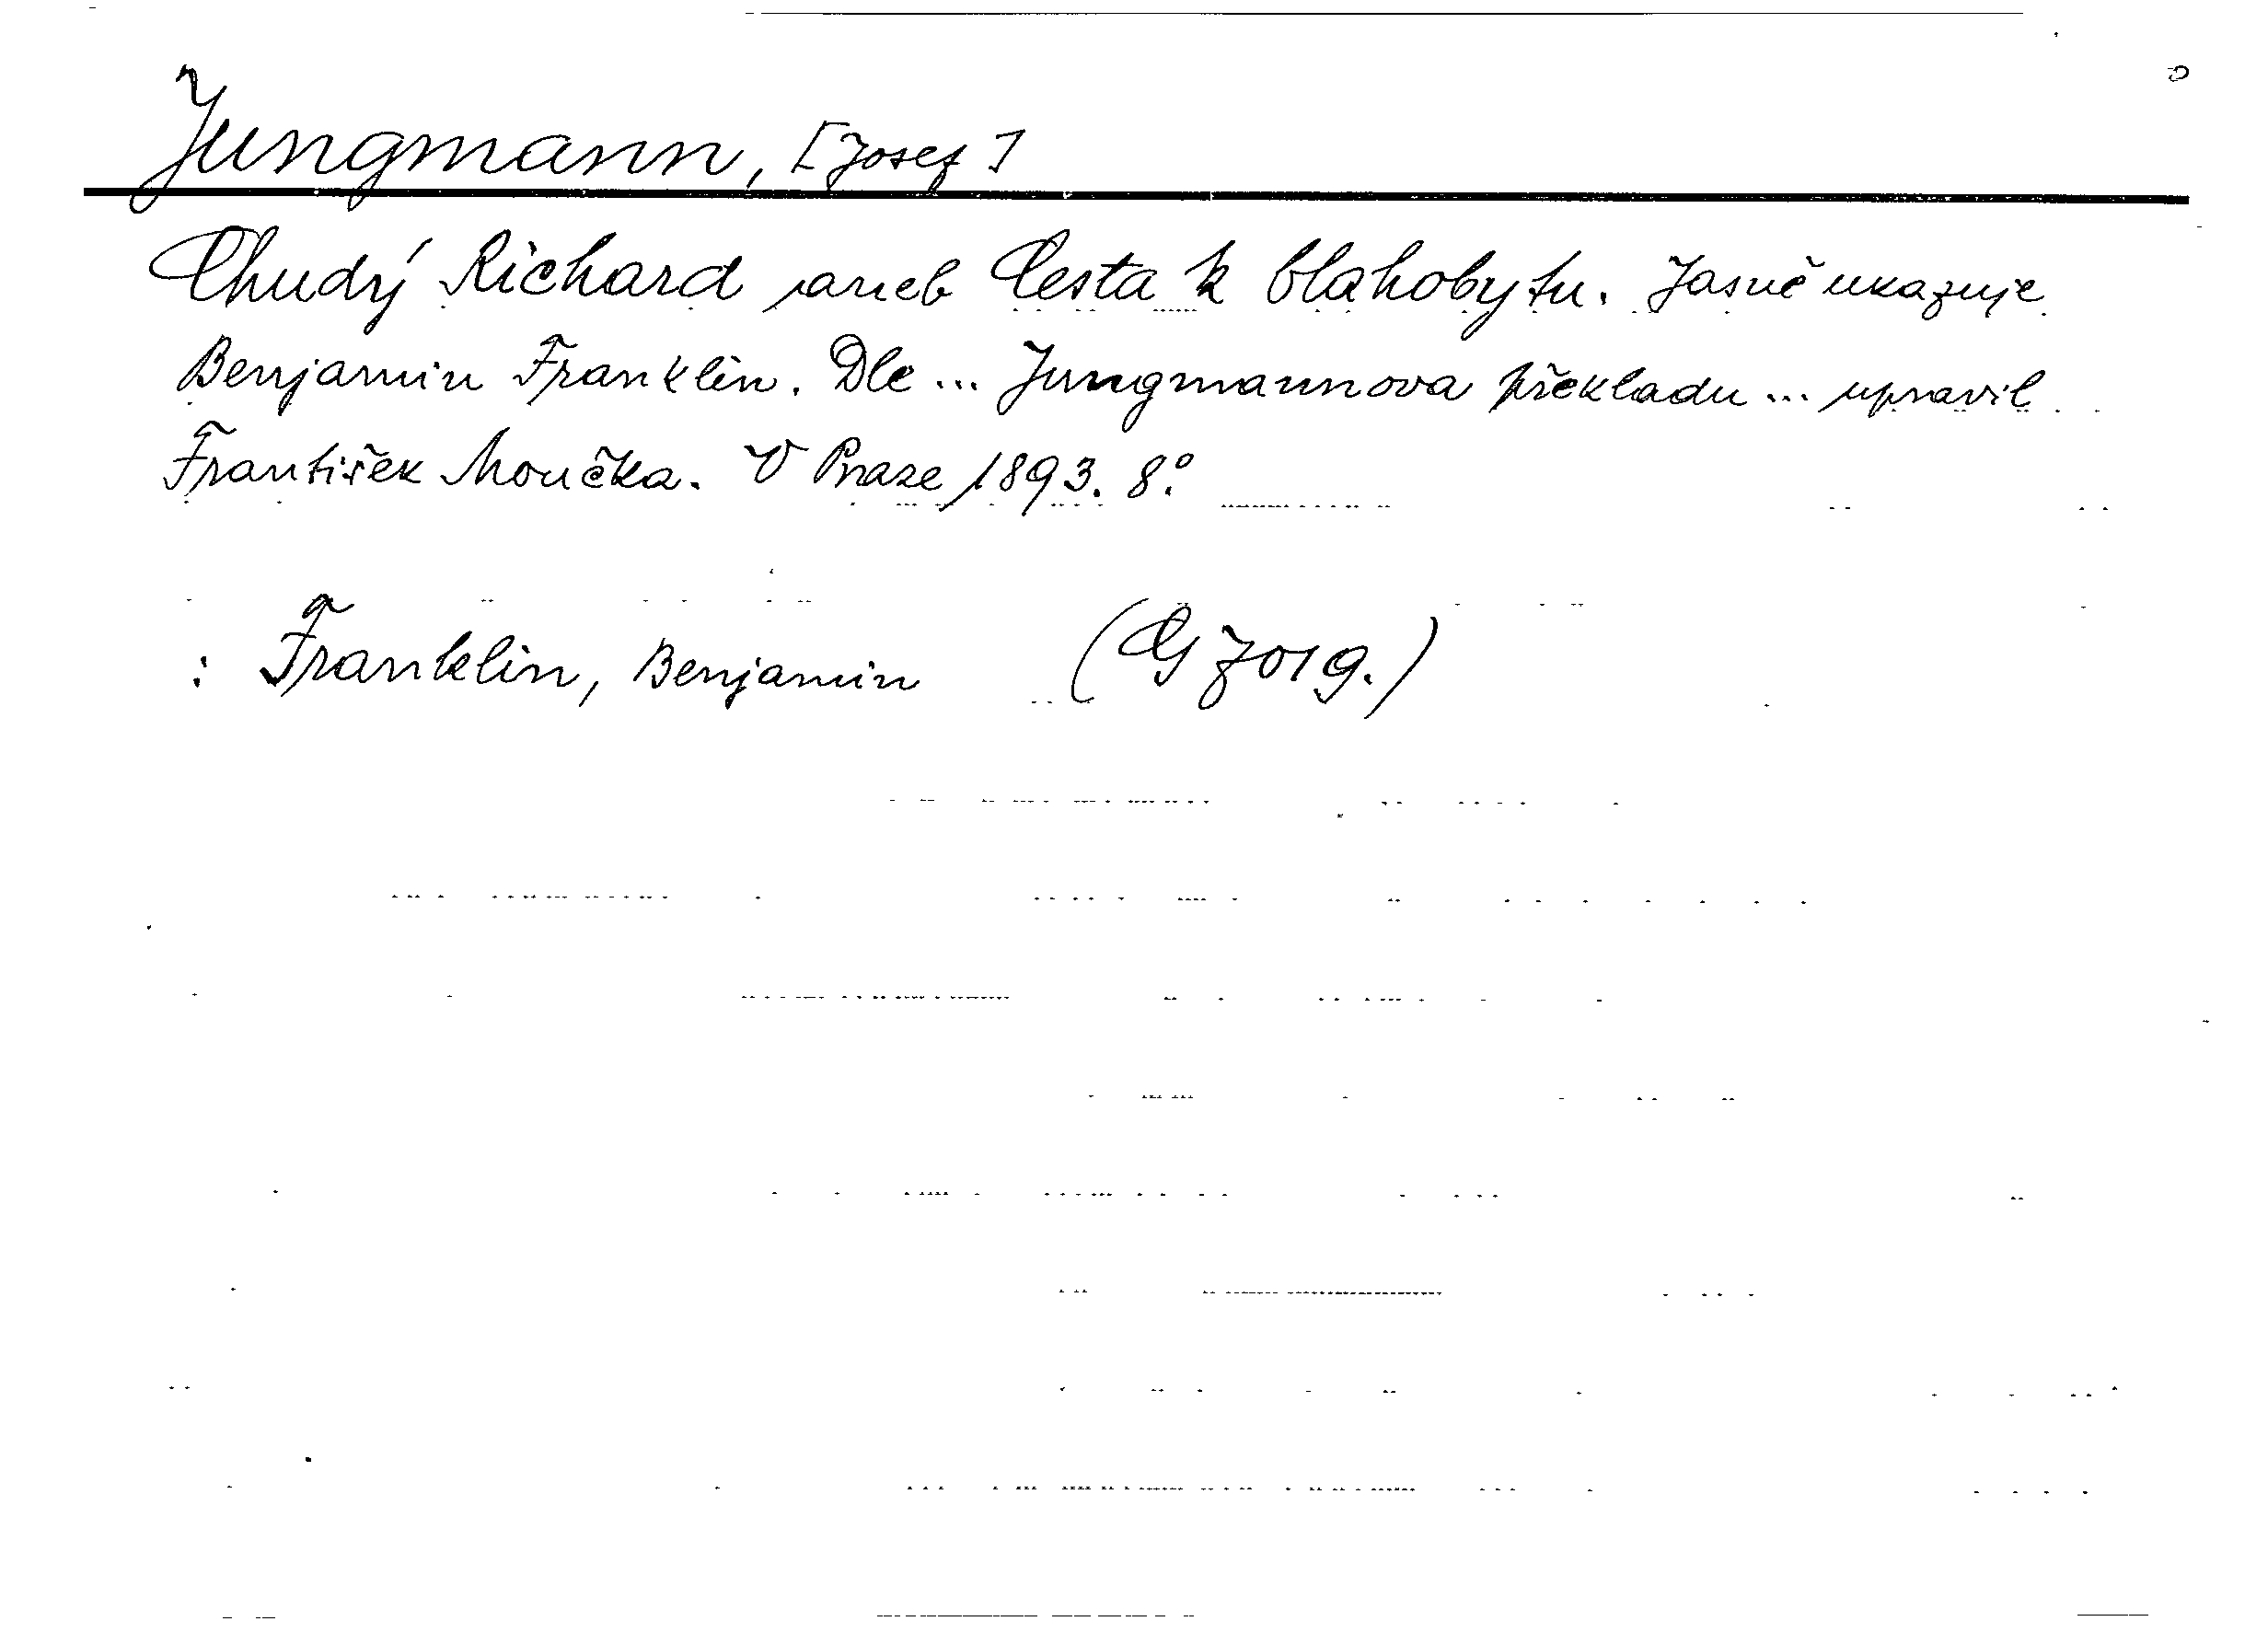 Jungmann, [Josef]
Chudý Richard aneb Cesta k blahobytu. Jasně ukazuje
Benjamin Franklin. Dle ... Jungmannova překladu ... upravil
František Moučka. V Praze 1893. 8.°
: Franklin, Benjamin (G 7019.)